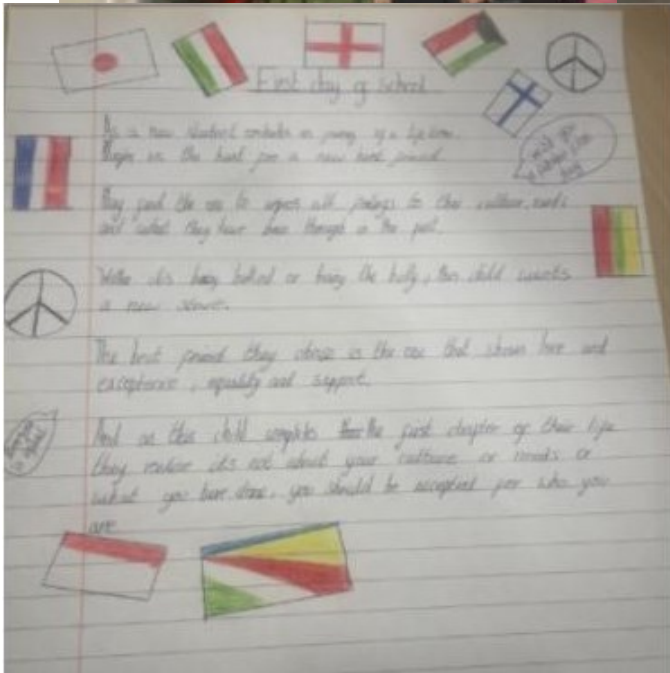 First day of school
As a new student embarks on journey of a life time.
Begin in the hunt for a new best friend.
They find the one to express with feelings to their culture, needs
and what they have been through in the past.
being bullied or being the bully, this child wants
a new start.
The best friend they chose is the one that shows love and
exceptance, equality and support.
And as this child completes the first chapter of their life
they realise it's not about your culture or needs or
what you have done, you should be accepted for who you
are